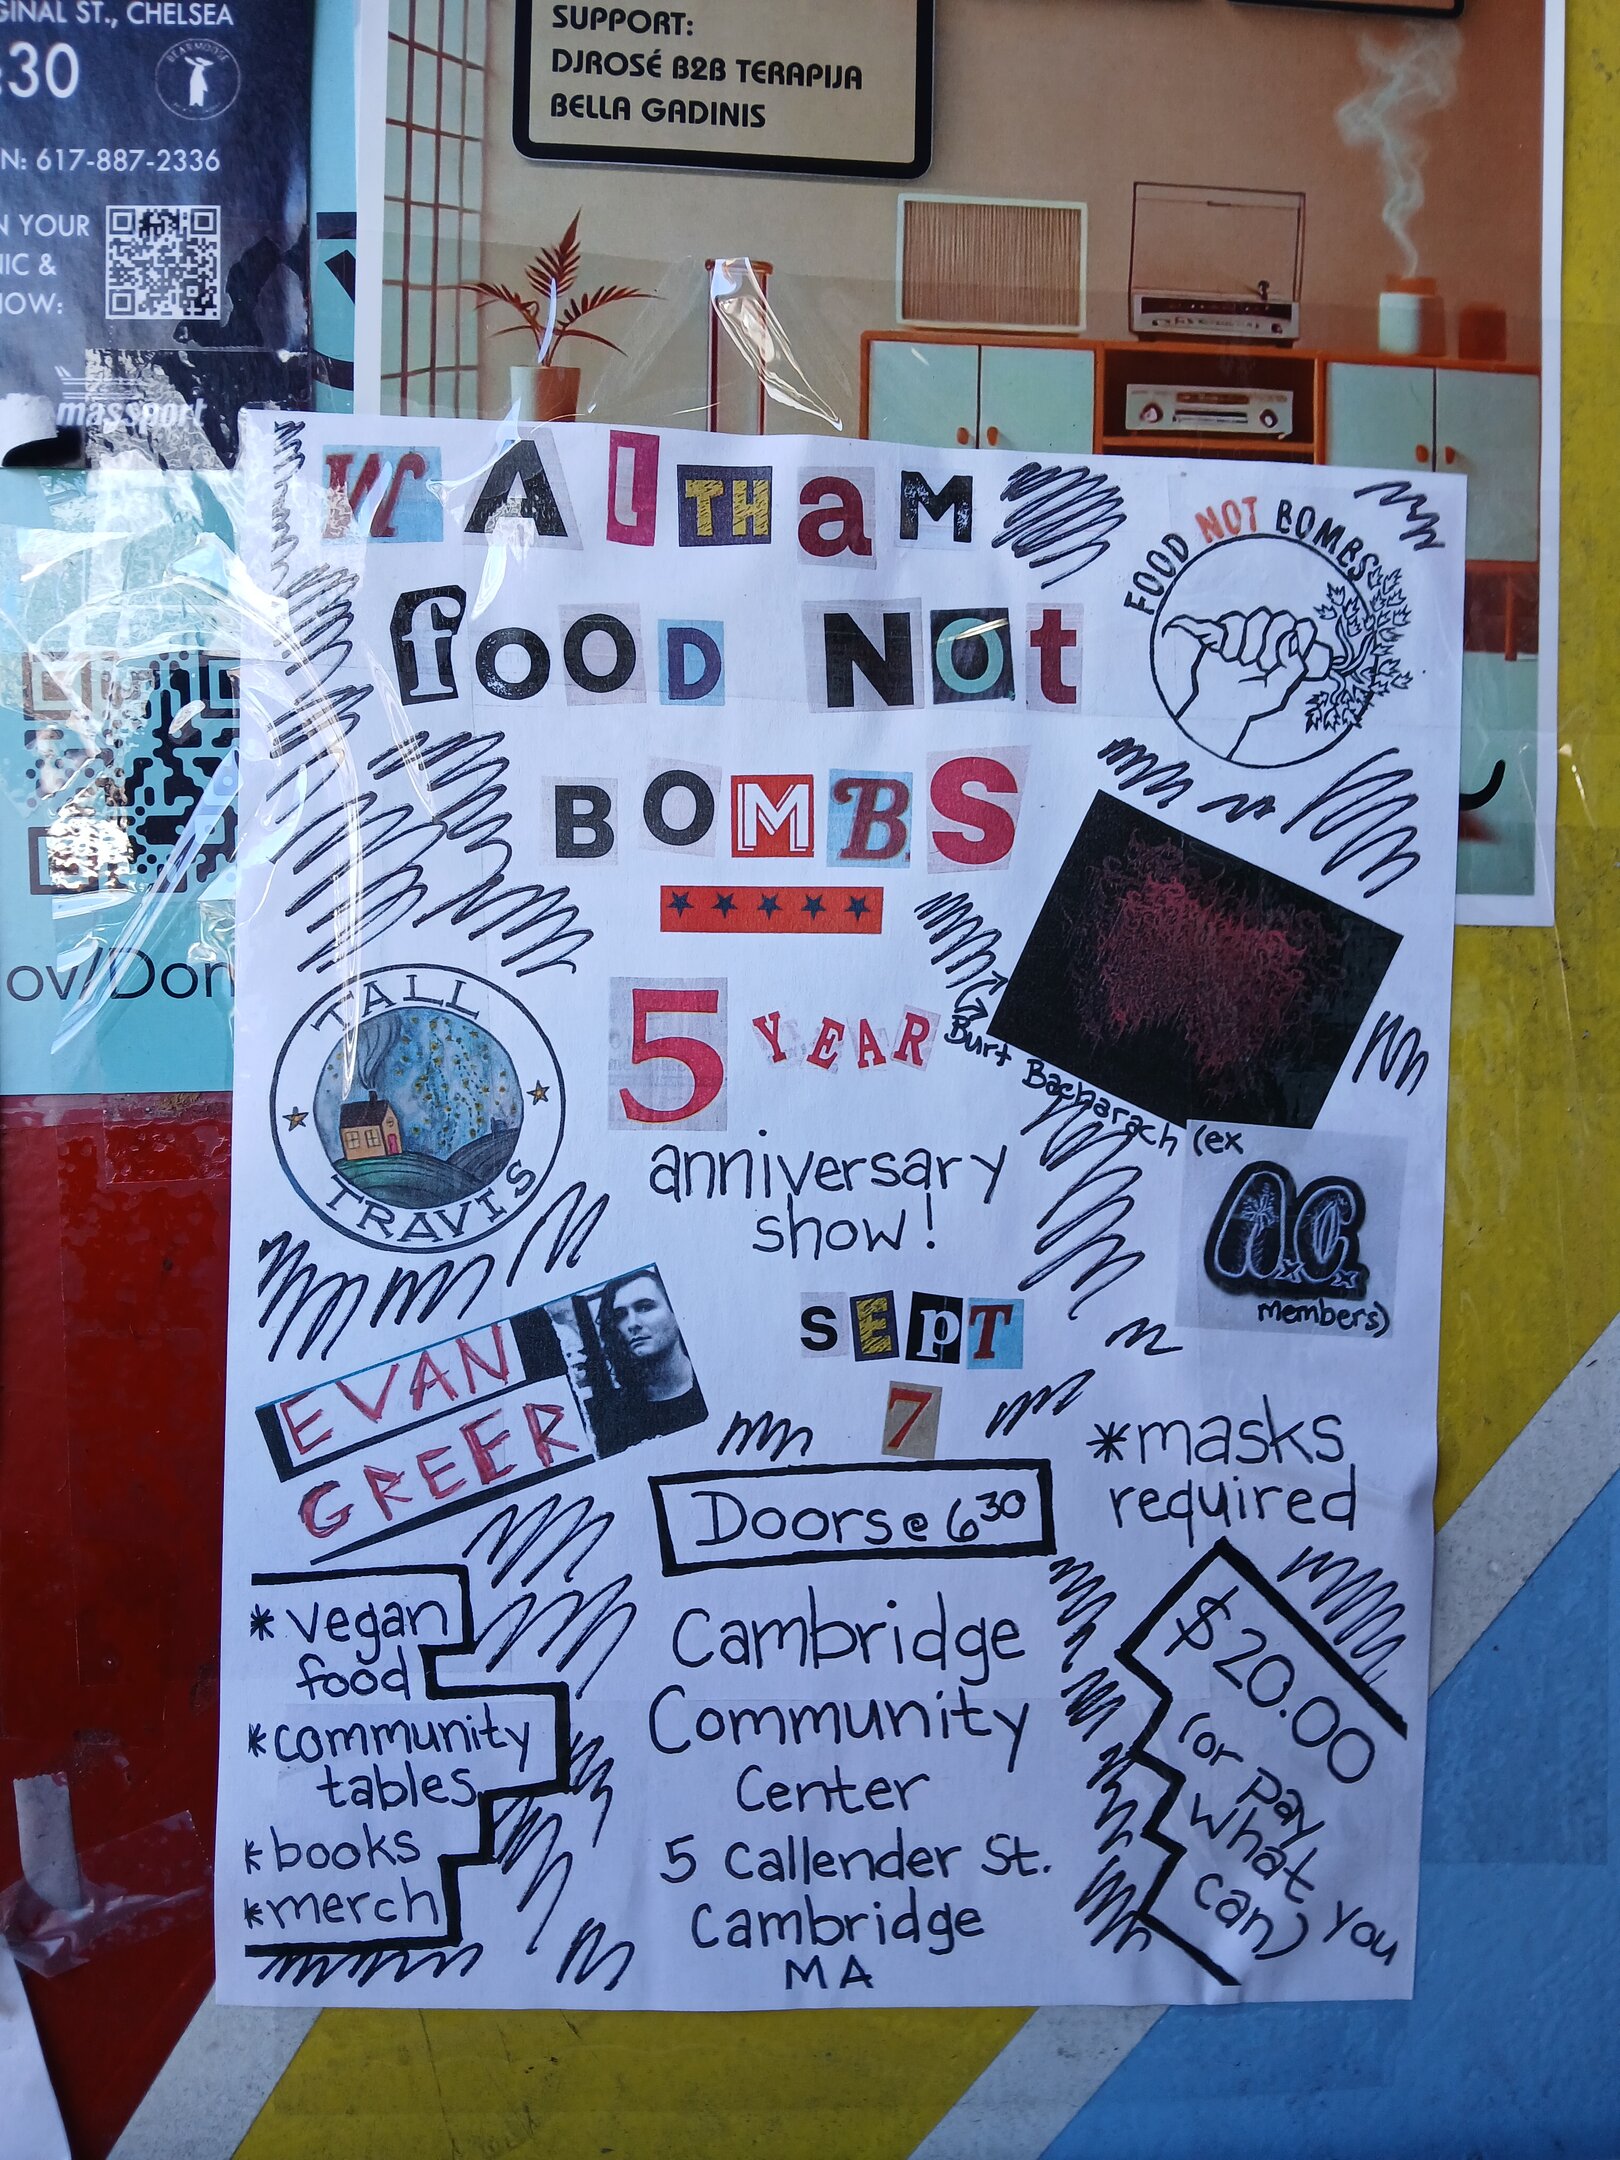 GINAL ST., CHELSEA
:30
N: 617-887-2336
N YOUR
NIC &
HOW:
massport
SUPPORT:
DJROSÉ B2B TERAPIJA
BELLA GADINIS
ov/Don
WAlTHaM
fOOD NOt
BOMBS
FOOD NOT BOMBS
TALL
TRAVIS
5 YEAR
anniversary
show!
Burt Bacharach (ex
A.C.
members)
EVAN
GREER
SEpT
7
Doors @ 6:30
*masks
required
*vegan
food
*community
tables
*books
*merch
Cambridge
Community
Center
5 Callender St.
Cambridge
MA
$20.00
(or pay
what you
can)